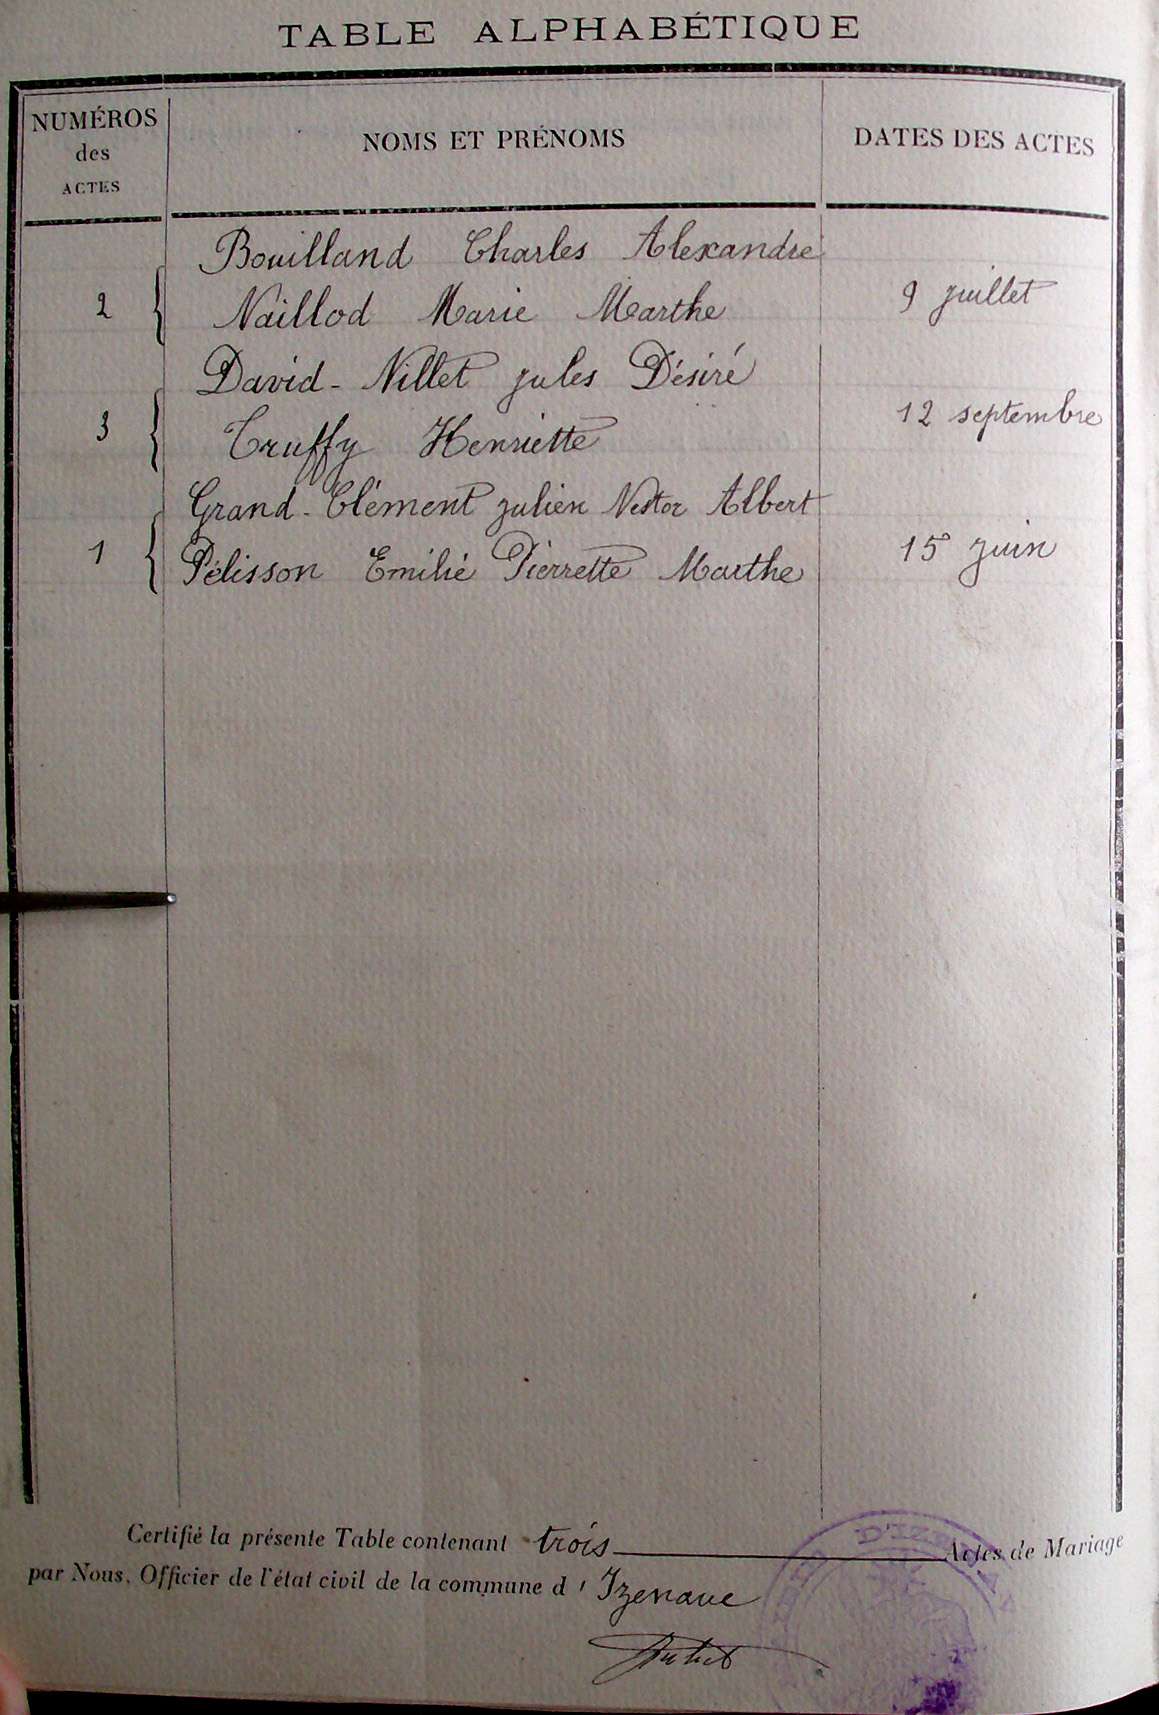 TABLE ALPHABÉTIQUE
NUMÉROS
des
ACTES
NOMS ET PRÉNOMS
DATES DES ACTES
Bouilland Charles Alexandre
2 { Naillod Marie Marthe 9 juillet
David-Nillet jules Désiré
3 { Truffy Henriette 12 septembre
Grand-Clément julien Nestor Albert
1 { Pélisson Emilie Pierrette Marthe 15 juin
Certifié la présente Table contenant trois Actes de Mariage
par Nous, Officier de l'état civil de la commune d' Izenave